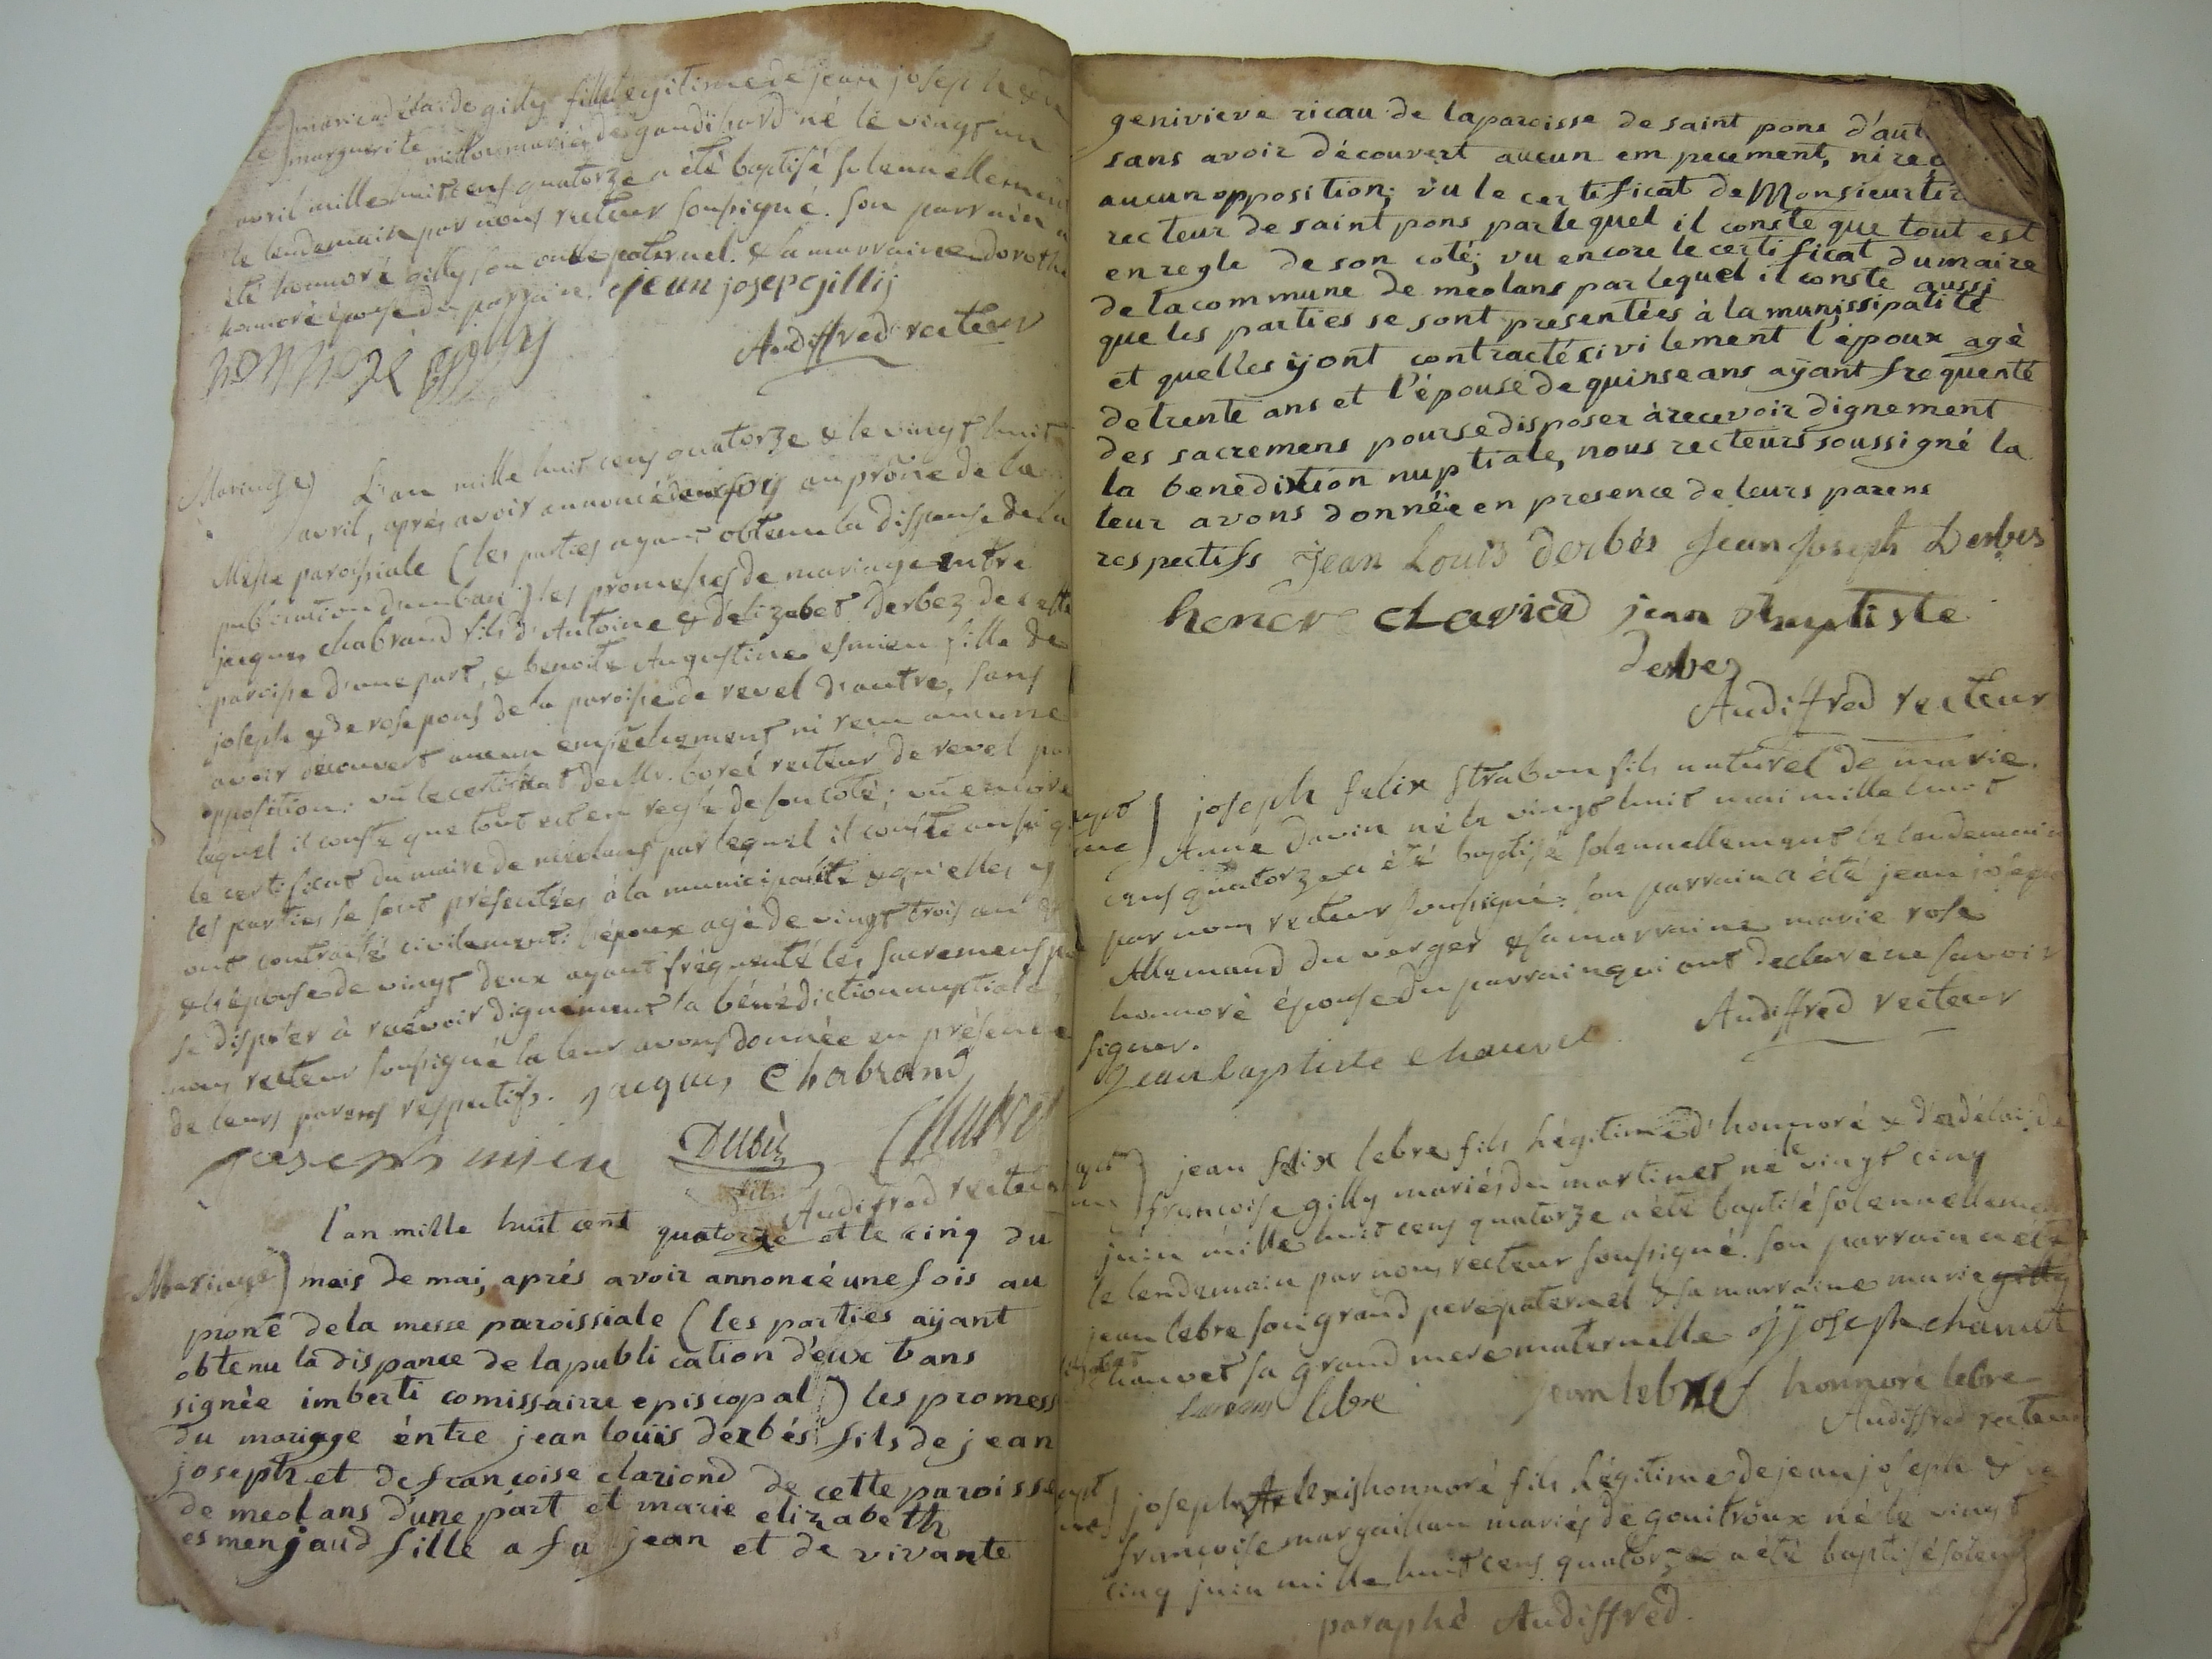 marie adélaïde gilly fille légitime de jean joseph & de
marguerite mariés de gaudissard né le vingt un
avril mille huit cens quatorze a été baptisé solennellement
le lendemain par nous recteur soussigné. son parrain a
été honnoré gilly son oncle paternel. & la marraine dorothé
honnoré épouse du parrain. jean josep gilly
honnoré gilly
Audiffred recteur
Mariage) L'an mille huit cens quatorze & le vingt huit
avril, aprés avoir annoncé deux fois au prône de la
Messe paroissiale (les parties ayant obtenu la dispense de la
publication d'un ban) les promesses de mariage entre
jacques chabrand fils d'Antoine & d'elizabet derbez de cette
paroisse d'une part, & benoite Augustine esmieu fille de
joseph & de rose pons de la paroisse de revel d'autre, sans
avoir découvert aucun empêchement ni reçu aucune
opposition: vu le certificat de Mr. borel recteur de revel par
lequel il conste que tout est en regle de son coté; vu encore
le certificat du maire de méolans par lequel il conste aussi q
les parties se sont présentées à la municipalité & qu'elles y
ont contracté civilement: l'époux agé de vingt trois ans &
& l'épouse de vingt deux ayant fréquenté les sacremens po
se disposer à recevoir dignement la bénédiction nuptiale,
nous recteur soussigné la leur avons donnée en présence
de leurs parens respectifs. jacques Chabrand
joseph mieu
Audifred recteur
l'an mille huit cent quatorze et le cinq du
Mariage) mois de mai, aprés avoir annoncé une fois au
prone de la messe paroissiale (les parties aÿant
obtenu la dispance de la publication d'eux bans
signée imberti comissairre episcopal) les promess
du mariage éntre jean louïs derbés fils de jean
joseph et de francoise clariond de cette paroisse
de meolans d'une part et marie elizabeth
esmenjaud fille a fu jean et de vivante
genivieve ricau de la paroisse de saint pons d'aut
sans avoir découvert aucun empecement, ni reç
aucun opposition; vu le certificat de Monsieur
recteur de saint pons par le quel il conste que tout est
en regle de son coté; vu encore le certificat du maire
de la commune de meolans par lequel il conste aussi
que les parties se sont presentées à la munissipalité
et quelles ÿ ont contracté civilement l'époux agè
de trente ans et l'épouse de quinse ans aÿant frequenté
des sacremens pour se disposer à recevoir dignement
la benediction nuptiale, nous recteurs soussigné la
leur avons donnée en presence de leurs parens
respectifs Jean Louis derbés Jean Joseph Derbés
honoré clariod jean Baptiste
derbez
Audiffred recteur
joseph felix strabon fils naturel de marie
Anne davin né le vingt huit mai mille huit
cens quatorze a été baptisé solennellement le lendemain
par nous recteur soussigné: son parrain a été jean joseph
Allemand du verger & sa marraine marie rose
honnoré épouse du parrain qui ont declaré ne savoir
signer.
Jean baptiste chauvet Audiffred recteur
jean felix lebre fils Légitime d'honnoré & d'adélaïde
françoise gilly mariés du martinet né le vingt cinq
juin mille huit cens quatorze a été baptisé solennellement
le lendemain par nous recteur soussigné. son parrain a été
jean lebre son grand pere paternel & sa marraine marie gilly
chauvet sa grand mere maternelle. joseph chauvet
lebre jean lebre honnoré lebre
Audiffred recteur
joseph Alexis honnoré fils Légitime de jean joseph & de
françoise margaillan mariés de gouitroux né le vingt
cinq juin mille huit cens quatorze a été baptisé solenn
paraphé Audiffred.